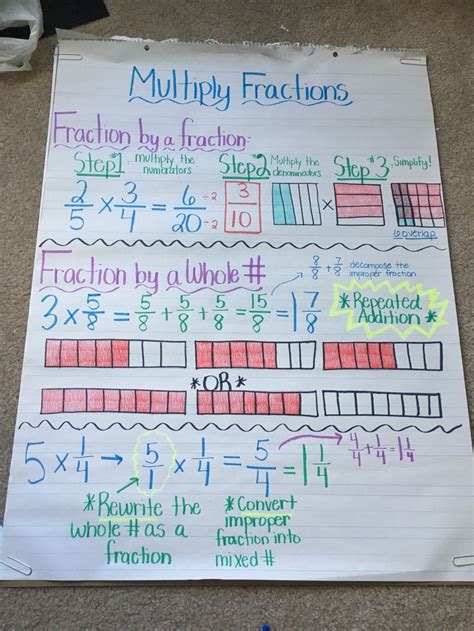 Multiply Fractions
Fraction by a fraction:
Step #1: multiply the numerators
Step #2 Multiply the denominators
Step #3 Simplify!
2/5 × 3/4 = 6/20 ÷2 ÷2 3/10
×
6 overlap
Fraction by a Whole #
8/8 + 7/8 decompose the improper fraction
3 × 5/8 = 5/8 + 5/8 + 5/8 = 15/8 = 1 7/8
* Repeated Addition *
* OR *
5 × 1/4 → 5/1 × 1/4 = 5/4 = 1 1/4
4/4 + 1/4 = 1 1/4
* Rewrite the
whole # as a
fraction
* Convert
improper
fraction into
mixed #